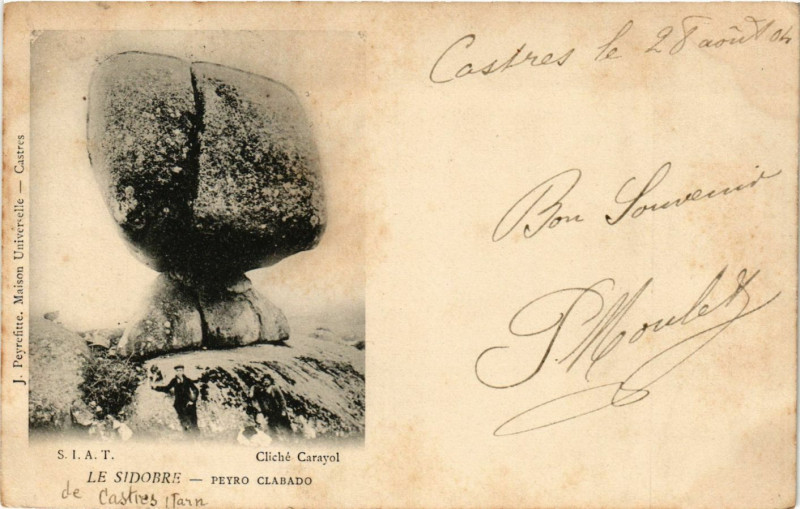 J. Peyrefitte. Maison Universelle — Castres
S. I. A. T. Cliché Carayol
LE SIDOBRE — PEYRO CLABADO
de Castres Tarn
Castres le 28 août 04
Bon Souvenir
P. Moulet